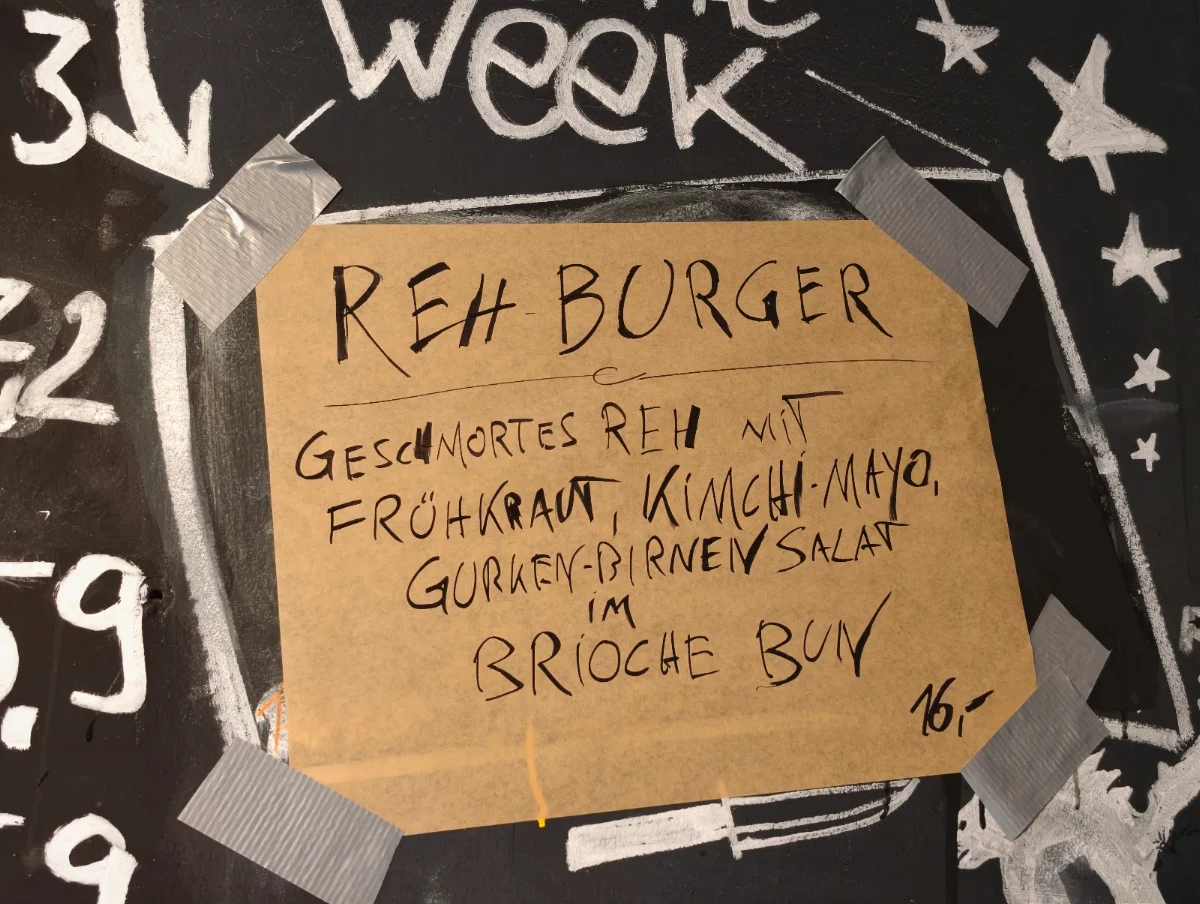 WEEK
3
REH-BURGER
GESCHMORTES REH MIT
FRÜHKRAUT, KIMCHI-MAYO,
GURKEN-BIRNEN SALAT
IM
BRIOCHE BUN
16,-
2
9
9